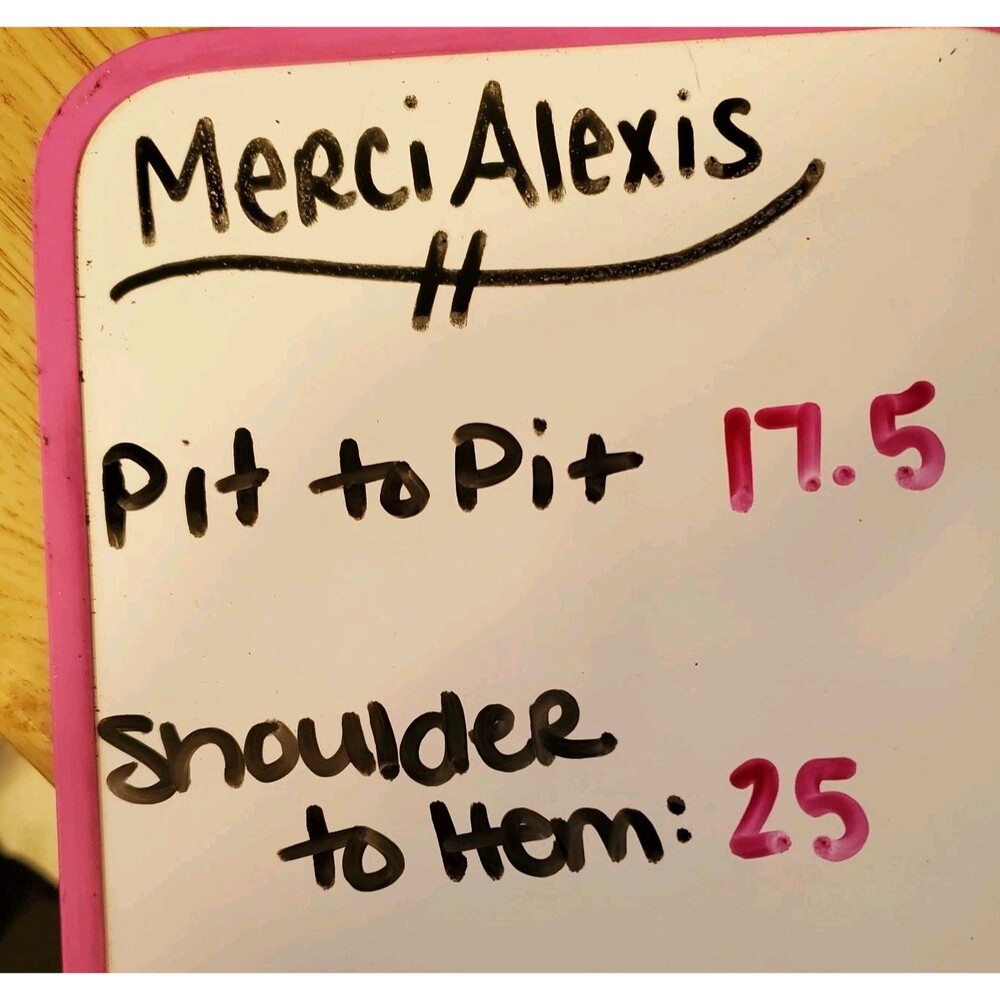 Merci Alexis
Pit to Pit 17.5
Shoulder
to Hem: 25